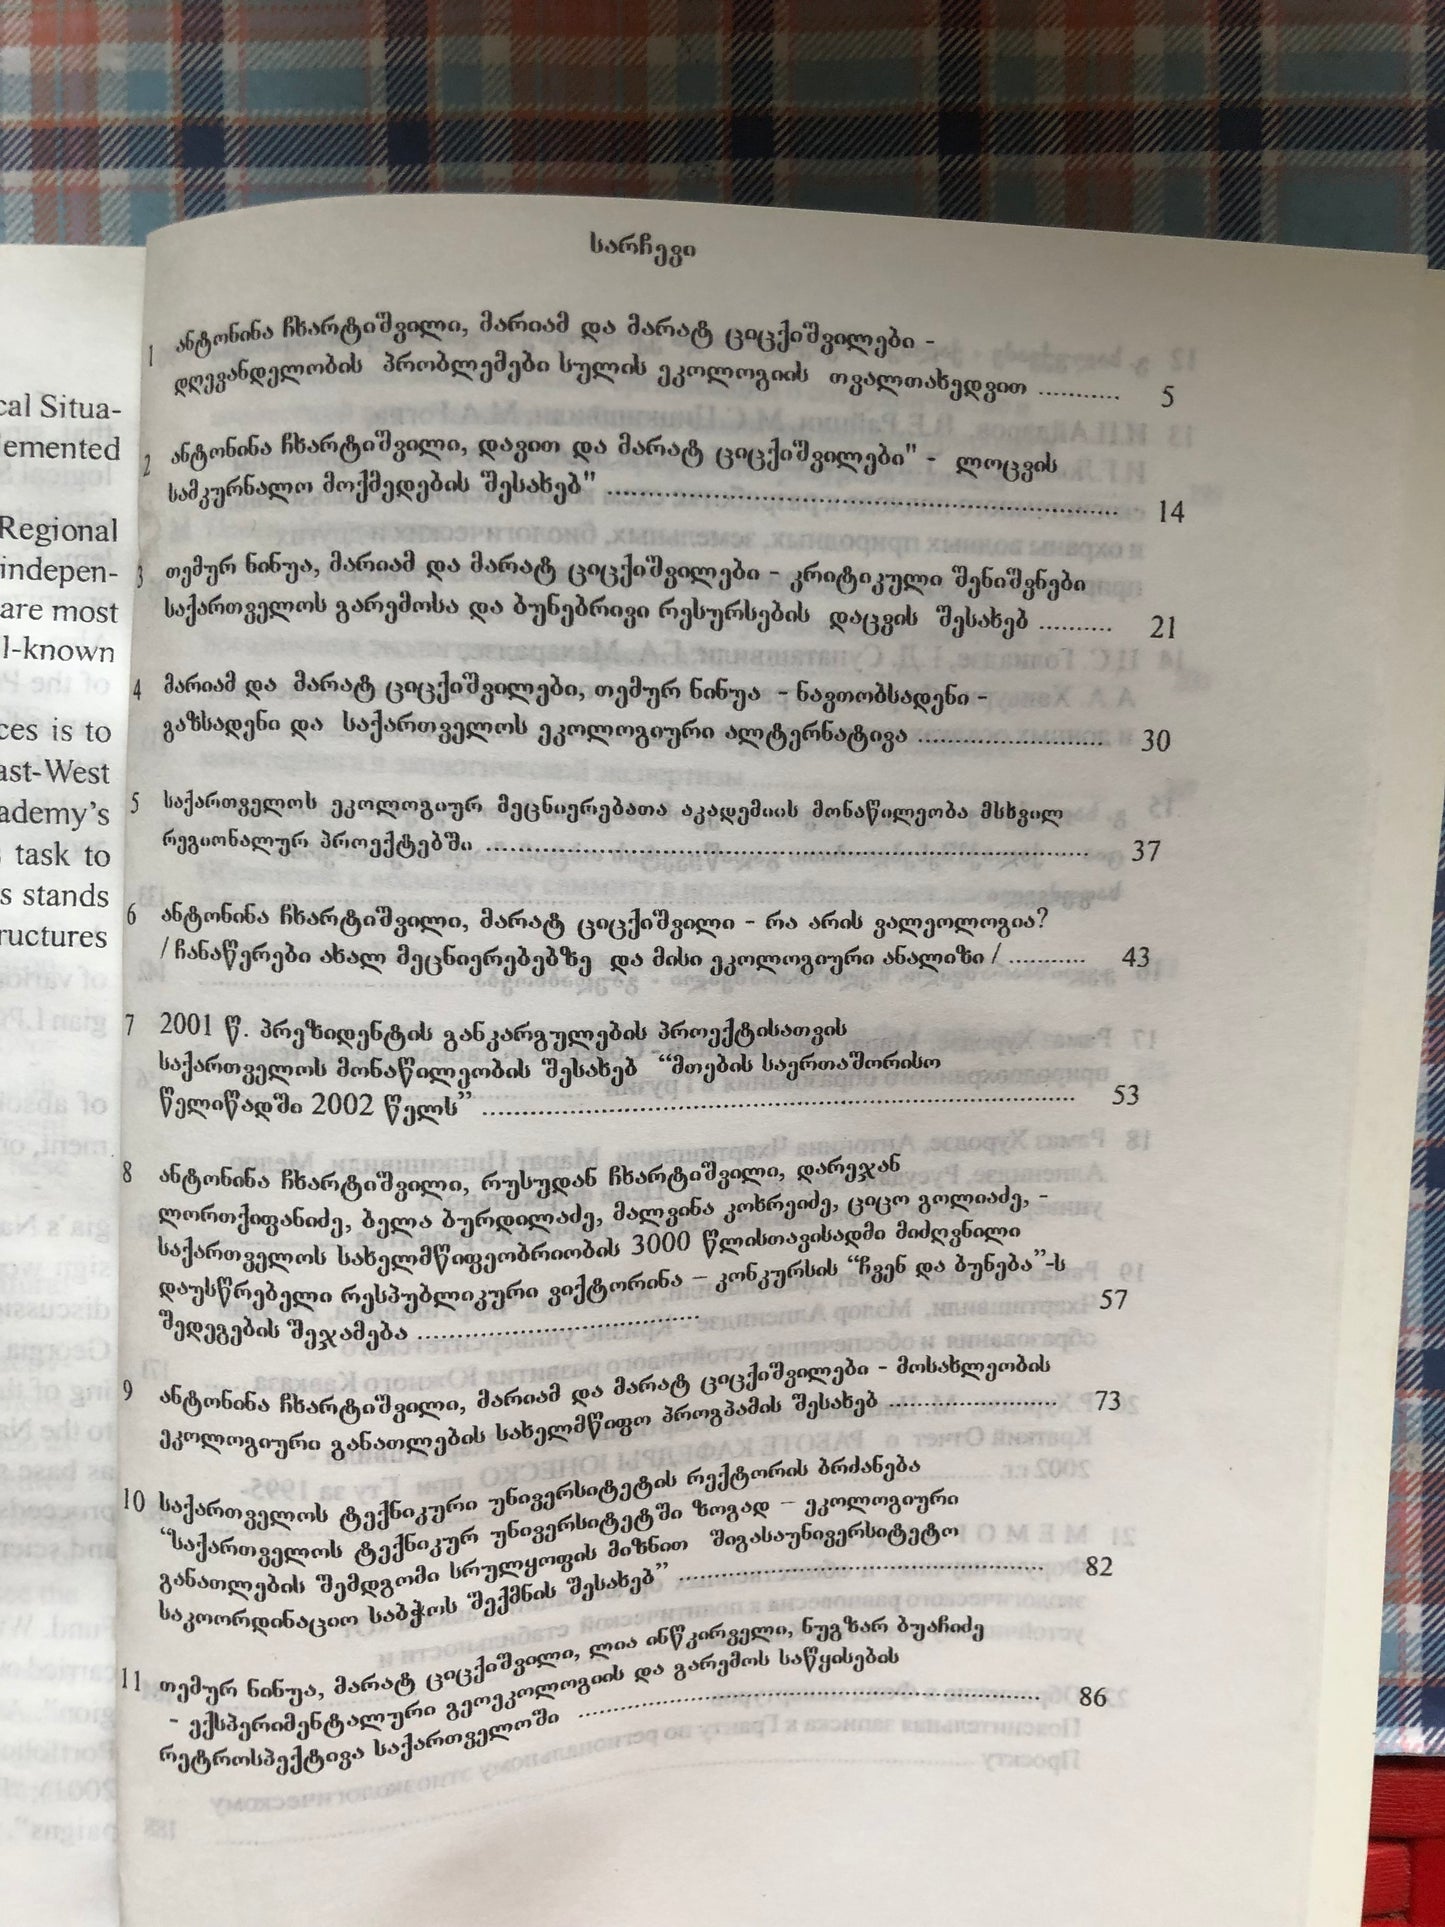 cal Situa-
lemented
Regional
indepen-
are most
l-known
ces is to
ast-West
ademy's
task to
s stands
ructures
სარჩევი
1 ანტონინა ჩხარტიშვილი, მარიამ და მარატ ციცქიშვილები -
დღევანდელობის პრობლემები სულის ეკოლოგიის თვალთახედვით ........... 5
2 ანტონინა ჩხარტიშვილი, დავით და მარატ ციცქიშვილები" - ლოცვის
სამკურნალო მოქმედების შესახებ" ........... 14
3 თემურ ნინუა, მარიამ და მარატ ციცქიშვილები - კრიტიკული შენიშვნები
საქართველოს გარემოსა და ბუნებრივი რესურსების დაცვის შესახებ .......... 21
4 მარიამ და მარატ ციცქიშვილები, თემურ ნინუა - ნავთობსადენი -
გაზსადენი და საქართველოს ეკოლოგიური ალტერნატივა ........... 30
5 საქართველოს ეკოლოგიურ მეცნიერებათა აკადემიის მონაწილეობა მსხვილ
რეგიონალურ პროექტებში ........... 37
6 ანტონინა ჩხარტიშვილი, მარატ ციცქიშვილი - რა არის ვალეოლოგია?
/ ჩანაწერები ახალ მეცნიერებებზე და მისი ეკოლოგიური ანალიზი / ........... 43
7 2001 წ. პრეზიდენტის განკარგულების პროექტისათვის
საქართველოს მონაწილეობის შესახებ “მთების საერთაშორისო
წელიწადში 2002 წელს” ........... 53
8 ანტონინა ჩხარტიშვილი, რუსუდან ჩხარტიშვილი, დარეჯან
ლორთქიფანიძე, ბელა ბურდილაძე, მალვინა კოხრეიძე, ციცო გოლიაძე, -
საქართველოს სახელმწიფეობრიობის 3000 წლისთავისადმი მიძღვნილი
დაუსწრებელი რესპუბლიკური ვიქტორინა – კონკურსის “ჩვენ და ბუნება”-ს
შედეგების შეჯამება ........... 57
9 ანტონინა ჩხარტიშვილი, მარიამ და მარატ ციცქიშვილები - მოსახლეობის
ეკოლოგიური განათლების სახელმწიფო პროგპამის შესახებ ........... 73
10 საქართველოს ტექნიკური უნივერსიტეტის რექტორის ბრძანება
“საქართველოს ტექნიკურ უნივერსიტეტში ზოგად – ეკოლოგიური
განათლების შემდგომი სრულყოფის მიზნით შიგასაუნივერსიტეტო
საკოორდინაციო საბჭოს შექმნის შესახებ” ........... 82
11 თემურ ნინუა, მარატ ციცქიშვილი, ლია ინწკირველი, ნუგზარ ბუაჩიძე
- ექსპერიმენტალური გეოეკოლოგიის და გარემოს საწყისების
რეტროსპექტივა საქართველოში ........... 86